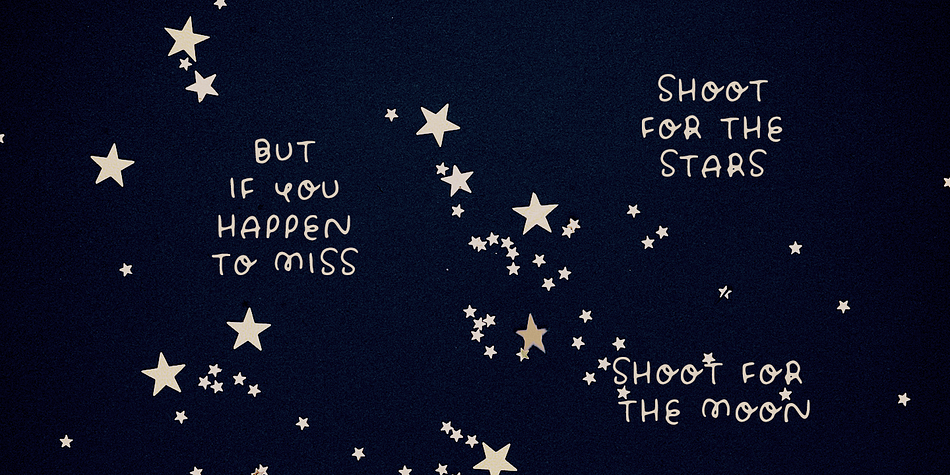 SHOOT
FOR THE
STARS
BUT
IF YOU
HAPPEN
TO MISS
SHOOT FOR
THE MOON